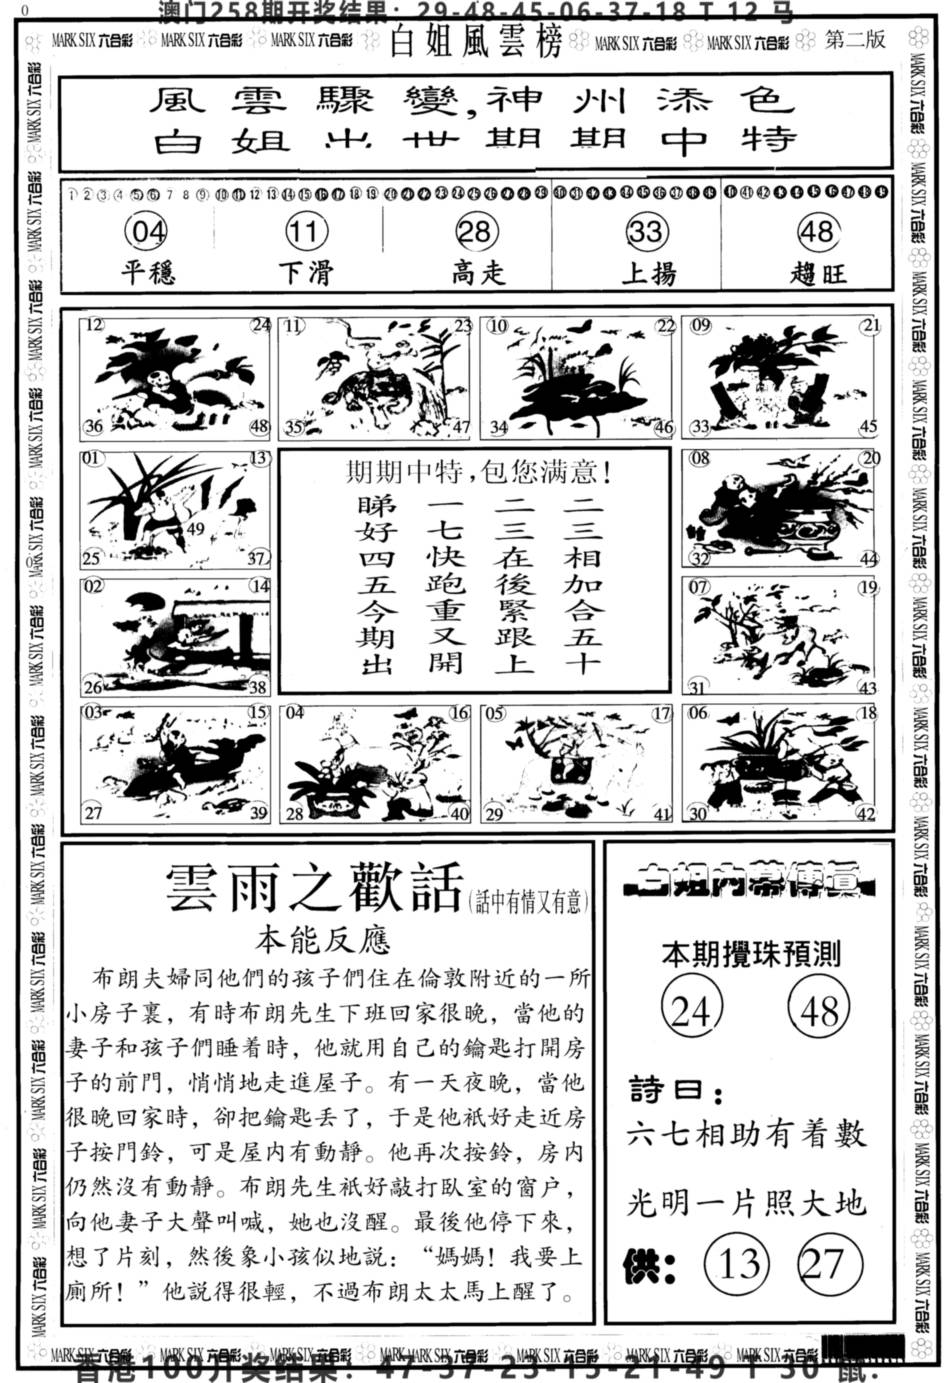 澳门258期开奖结果：29-48-45-06-37-18 T 12 马
0
MARK SIX 六合彩 MARK SIX 六合彩 MARK SIX 六合彩 白姐風雲榜 MARK SIX 六合彩 MARK SIX 六合彩 第二版
風雲驟變,神州添色
白姐出世期期中特
1 2 3 4 5 6 7 8 9 10 11 12 13 14 15 16 17 18 19 20 21 22 23 24 25 26 27 28 29 30 31 32 33 34 35 36 37 38 39 40 41 42 43 44 45 46 47 48 49
04 11 28 33 48
平穩 下滑 高走 上揚 趨旺
12 24 11 23 10 22 09 21
36 48 35 47 34 46 33 45
01 13
49
25 37
08 20
32 44
02 14
26 38
07 19
31 43
期期中特,包您满意!
二三相加合五十
二三在後緊跟上
一七快跑重又開
睇好四五今期出
03 15 04 16 05 17 06 18
27 39 28 40 29 41 30 42
雲雨之歡話(話中有情又有意)
本能反應
布朗夫婦同他們的孩子們住在倫敦附近的一所
小房子裏，有時布朗先生下班回家很晚，當他的
妻子和孩子們睡着時，他就用自己的鑰匙打開房
子的前門，悄悄地走進屋子。有一天夜晚，當他
很晚回家時，卻把鑰匙丢了，于是他祇好走近房
子按門鈴，可是屋内有動靜。他再次按鈴，房内
仍然沒有動靜。布朗先生祇好敲打臥室的窗户，
向他妻子大聲叫喊，她也沒醒。最後他停下來，
想了片刻，然後象小孩似地説：“媽媽！我要上
廁所！”他説得很輕，不過布朗太太馬上醒了。
白姐内幕傳真
本期攪珠預測
24 48
詩曰：
六七相助有着數
光明一片照大地
供：13 27
MARK SIX 六合彩 MARK SIX 六合彩 MARK SIX 六合彩 MARK SIX 六合彩 MARK SIX 六合彩 MARK SIX 六合彩
香港100开奖结果：47-37-23-15-21-49 T 30 鼠.